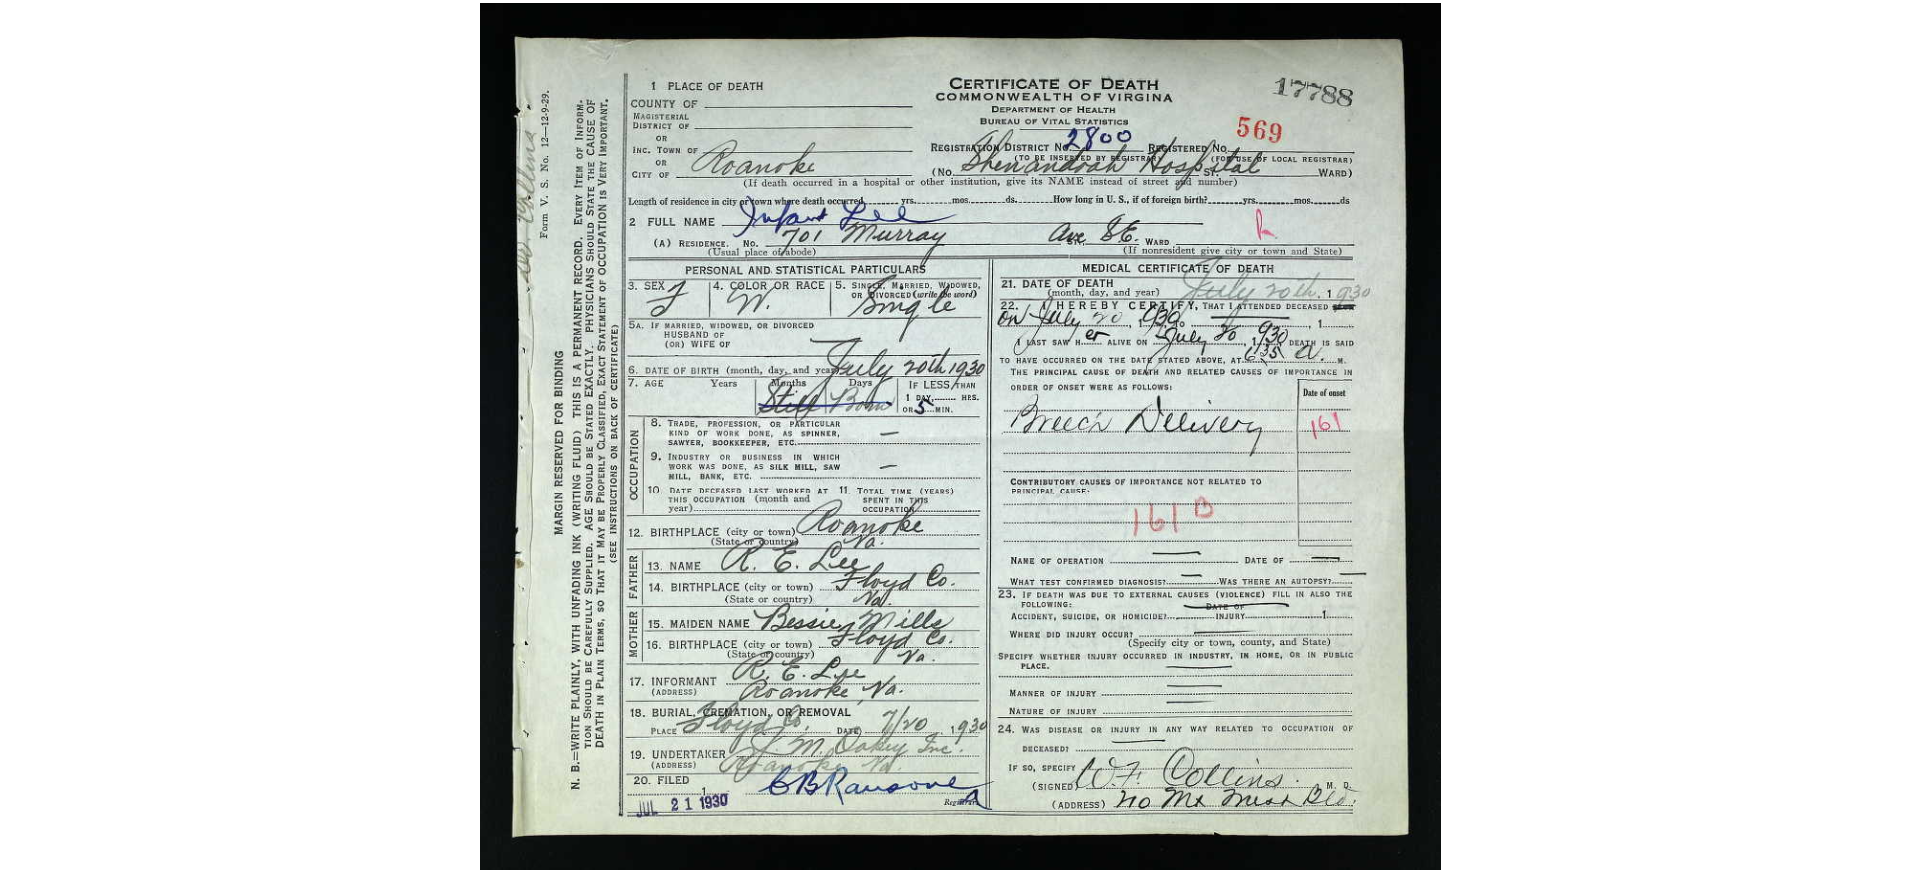 1 PLACE OF DEATH
COUNTY OF
MAGISTERIAL
DISTRICT OF
OR
INC. TOWN OF
OR
CITY OF Roanoke
CERTIFICATE OF DEATH
COMMONWEALTH OF VIRGINA
DEPARTMENT OF HEALTH
BUREAU OF VITAL STATISTICS
17788
569
REGISTRATION DISTRICT No. 2800 REGISTERED No.
(TO BE INSERTED BY REGISTRAR) (FOR USE OF LOCAL REGISTRAR)
(No. Shenandoah Hospital ST. WARD)
(If death occurred in a hospital or other institution, give its NAME instead of street and number)
Length of residence in city or town where death occurred yrs. mos. ds. How long in U. S., if of foreign birth? yrs. mos. ds
2 FULL NAME Infant Lee
(A) RESIDENCE. No. 701 Murray Ave SE. WARD
(Usual place of abode) (If nonresident give city or town and State)
PERSONAL AND STATISTICAL PARTICULARS
3. SEX F 4. COLOR OR RACE W. 5. SINGLE, MARRIED, WIDOWED,
OR DIVORCED (write the word) Single
5A. IF MARRIED, WIDOWED, OR DIVORCED
HUSBAND OF
(OR) WIFE OF
6. DATE OF BIRTH (month, day, and year) July 20th 1930
7. AGE Years Months Days IF LESS THAN
Still Born 1 DAY, HRS.
OR 5 MIN.
OCCUPATION
8. TRADE, PROFESSION, OR PARTICULAR
KIND OF WORK DONE, AS SPINNER, —
SAWYER, BOOKKEEPER, ETC.
9. INDUSTRY OR BUSINESS IN WHICH
WORK WAS DONE, AS SILK MILL, SAW —
MILL, BANK, ETC.
10. DATE DECEASED LAST WORKED AT 11. TOTAL TIME (YEARS)
THIS OCCUPATION (month and SPENT IN THIS
year) OCCUPATION
12. BIRTHPLACE (city or town) Roanoke
(State or country) Va.
FATHER
13. NAME R. E. Lee
14. BIRTHPLACE (city or town) Floyd Co.
(State or country) Va.
MOTHER
15. MAIDEN NAME Bessie Mills
16. BIRTHPLACE (city or town) Floyd Co.
(State or country) Va.
17. INFORMANT R. E. Lee
(ADDRESS) Roanoke, Va.
18. BURIAL, CREMATION, OR REMOVAL
PLACE Floyd Co. DATE 7/20, 1930
19. UNDERTAKER J. M. Oakey Inc.
(ADDRESS) Roanoke Va.
20. FILED
JUL 21 1930 CB Ransone
Registrar
MEDICAL CERTIFICATE OF DEATH
21. DATE OF DEATH
(month, day, and year) July 20th, 1930
22. I HEREBY CERTIFY, THAT I ATTENDED DECEASED
on July 20, 1930
I LAST SAW HER ALIVE ON July 20, 1930 DEATH IS SAID
TO HAVE OCCURRED ON THE DATE STATED ABOVE, AT 635 a. M.
THE PRINCIPAL CAUSE OF DEATH AND RELATED CAUSES OF IMPORTANCE IN
ORDER OF ONSET WERE AS FOLLOWS:
Date of onset
Breech Delivery 161
CONTRIBUTORY CAUSES OF IMPORTANCE NOT RELATED TO
PRINCIPAL CAUSE:
161 B
NAME OF OPERATION DATE OF
WHAT TEST CONFIRMED DIAGNOSIS? WAS THERE AN AUTOPSY?
23. IF DEATH WAS DUE TO EXTERNAL CAUSES (VIOLENCE) FILL IN ALSO THE
FOLLOWING:
DATE OF
ACCIDENT, SUICIDE, OR HOMICIDE? INJURY 1
WHERE DID INJURY OCCUR?
(Specify city or town, county, and State)
SPECIFY WHETHER INJURY OCCURRED IN INDUSTRY, IN HOME, OR IN PUBLIC
PLACE.
MANNER OF INJURY
NATURE OF INJURY
24. WAS DISEASE OR INJURY IN ANY WAY RELATED TO OCCUPATION OF
DECEASED?
IF SO, SPECIFY
(SIGNED) W. F. Collins M. D.
(ADDRESS)
Form V. S. No. 12—12-9-29.
MARGIN RESERVED FOR BINDING
N. B.—WRITE PLAINLY, WITH UNFADING INK (WRITING FLUID) THIS IS A PERMANENT RECORD. EVERY ITEM OF INFORM-
TION SHOULD BE CAREFULLY SUPPLIED. AGE SHOULD BE STATED EXACTLY. PHYSICIANS SHOULD STATE THE CAUSE OF
DEATH IN PLAIN TERMS, SO THAT IT MAY BE PROPERLY CLASSIFIED. EXACT STATEMENT OF OCCUPATION IS VERY IMPORTANT.
(SEE INSTRUCTIONS ON BACK OF CERTIFICATE)